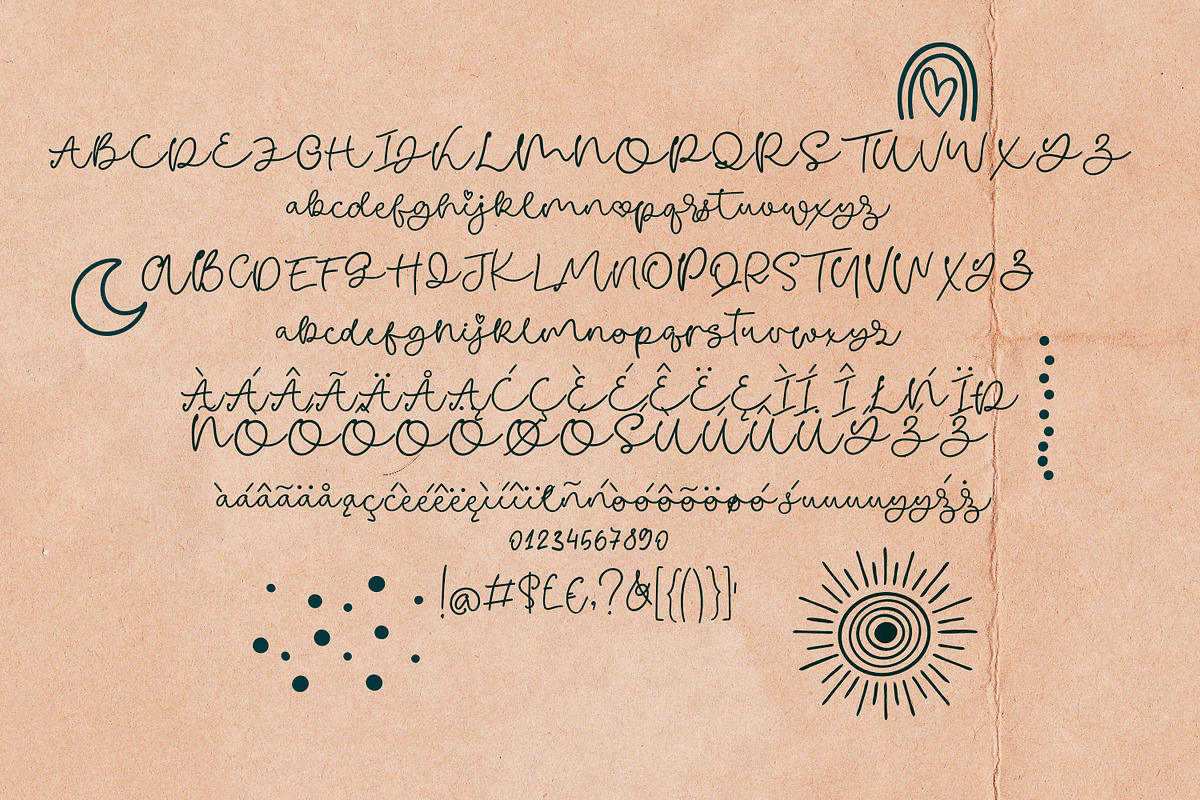 ABCDEFGHIJKLMNOPQRSTUVWXYZ
abcdefghijklmnopqrstuvwxyz
ABCDEFGHIJKLMNOPQRSTUVWXYZ
abcdefghijklmnopqrstuvwxyz
ÀÁÂÃÄÅĄĆÇÈÉÊËĘÌÍÎŁŃÏÐ
ÑÒÓÔÕÖØÓŚÙÚÛÜÝŹŻ
àáâãäåąçćèéêëęìíîïłñńòóôõöøóśuuuuyyźż
01234567890
!@#$£€,?&[{()}]'